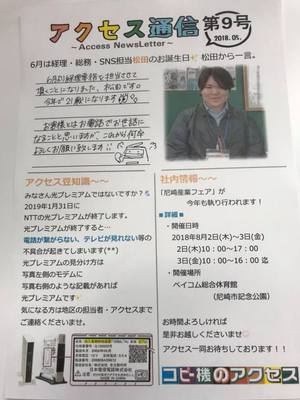 アクセス通信
第9号
2018.05.
～Access NewsLetter～
6月は経理・総務・SNS担当松田のお誕生日 松田から一言。
6月より経理事務を担当させて
頂くことになりました、松田です。
今年で21歳になります
お客様とはお電話でお世話に
なることと思いますが、これから何卒
よろしくお願い致します!!
アクセス豆知識～～
みなさん光プレミアムではないですか？
2019年1月31日に
NTTの光プレミアムが終了します。
光プレミアムが終了すると…
電話が繋がらない、テレビが見れない等の
不具合が起きてしまいます(**)
光プレミアムの見分け方は
写真左側のモデムに
写真右側のような記載があれば
光プレミアムです
気になる方は地区の担当者・アクセスまで
ご連絡くださいませ。
社内情報～～
「尼崎産業フェア」が
今年も執り行われます！
■詳細■
・開催日時
2018年8月2日(木)～3日(金)
2日(木)10：00～17：00
3日(金)10：00～16：00 迄
・開催場所
ベイコム総合体育館
(尼崎市記念公園)
お時間よろしければ
是非お越しくださいませ
アクセス一同お待ちしております！！
コピー機のアクセス